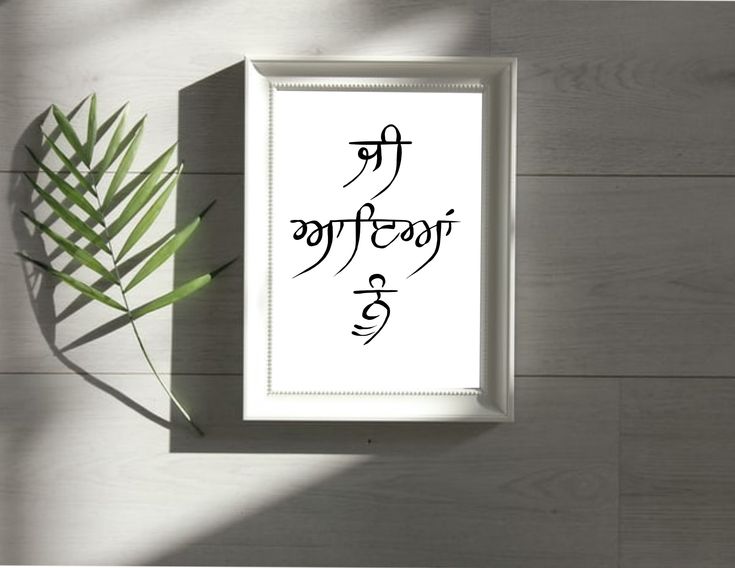 ਜੀ
ਆਇਆਂ
ਨੂੰ